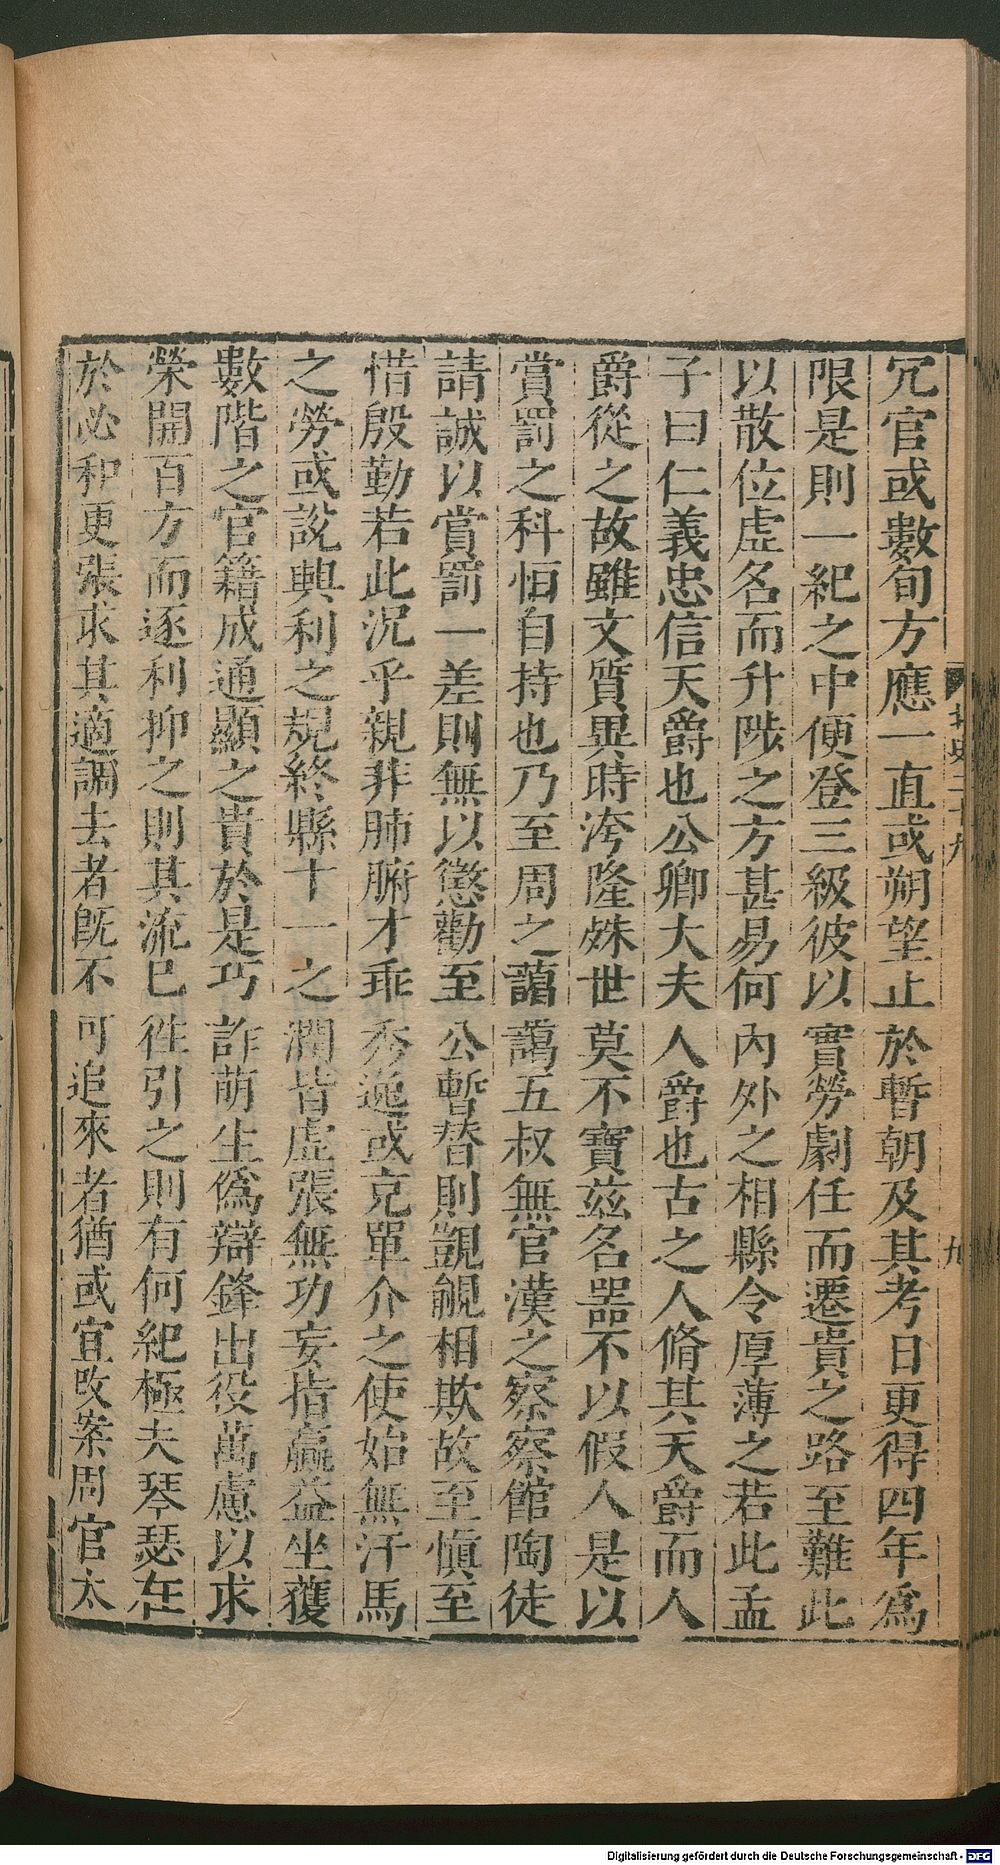 冗官或數旬方應一直或朔望止於暫朝及其考日更得四年爲
限是則一紀之中便登三級彼以實勞劇任而遷貴之路至難此
以散位虛名而升陟之方甚易何內外之相縣令厚薄之若此孟
子曰仁義忠信天爵也公卿大夫人爵也古之人脩其天爵而人
爵從之故雖文質異時洿隆殊世莫不寶茲名器不以假人是以
賞罰之科恒自持也乃至周之藹藹五叔無官漢之察察館陶徒
請誠以賞罰一差則無以懲勸至公暫替則覬覦相欺故至慎至
惜殷勤若此況乎親非肺腑才乖秀逸或充單介之使始無汗馬
之勞或說興利之規終縣十一之潤皆虛張無功妄指贏益坐獲
數階之官籍成通顯之貴於是巧詐萌生僞辯鋒出役萬慮以求
榮開百方而逐利抑之則其流已徃引之則有何紀極夫琴瑟在
於必和更張求其適調去者旣不可追來者猶或宜改案周官太
北史二十九
九
Digitalisierung gefördert durch die Deutsche Forschungsgemeinschaft - DFG